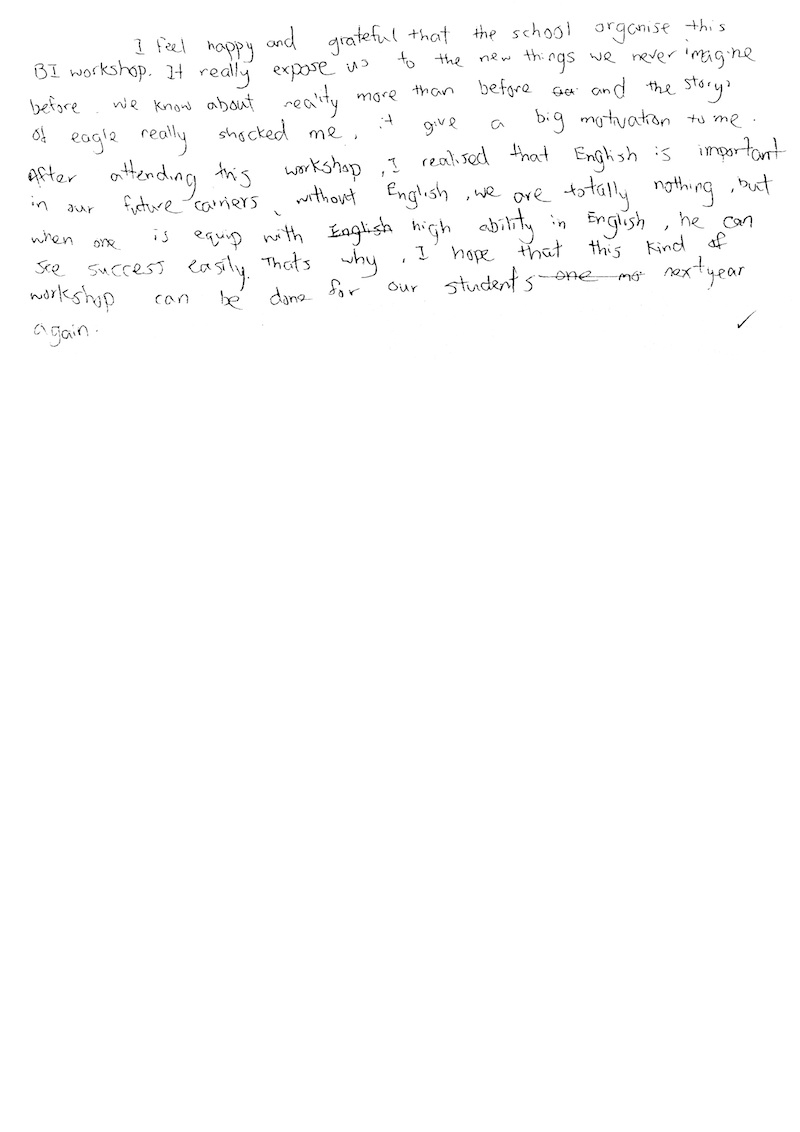 I feel happy and grateful that the school organise this
BI workshop. It really expose us to the new things we never imagine
before. We know about reality more than before and the story
of eagle really shocked me, it give a big motivation to me.
After attending this workshop, I realised that English is important
in our future carriers, without English, we are totally nothing, but
when one is equip with English high ability in English, he can
see success easily. Thats why, I hope that this kind of
workshop can be done for our student's one mo next year
again.